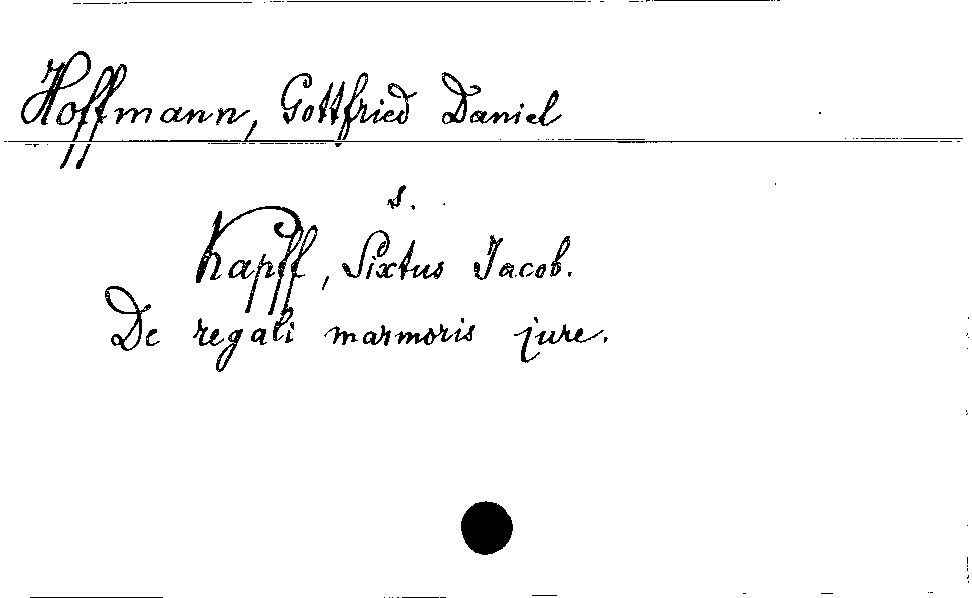 Hoffmann, Gottfried Daniel
s.
Kapff, Sixtus Jacob.
De regali marmoris jure.